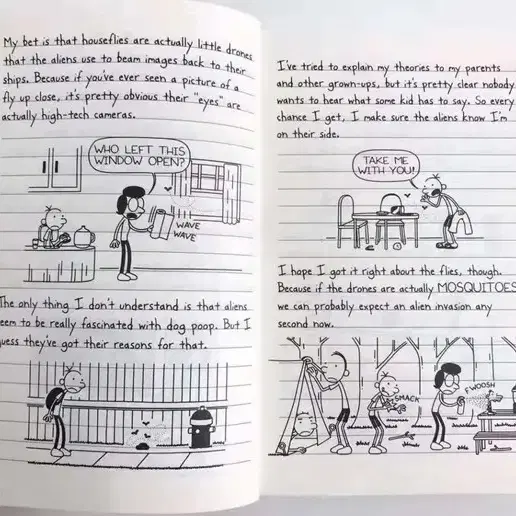 My bet is that houseflies are actually little drones
that the aliens use to beam images back to their
ships. Because if you've ever seen a picture of a
fly up close, it's pretty obvious their "eyes" are
actually high-tech cameras.
WHO LEFT THIS
WINDOW OPEN?
WAVE
WAVE
The only thing I don't understand is that aliens
seem to be really fascinated with dog poop. But I
guess they've got their reasons for that.
I've tried to explain my theories to my parents
and other grown-ups, but it's pretty clear nobody
wants to hear what some kid has to say. So every
chance I get, I make sure the aliens know I'm
on their side.
TAKE ME
WITH YOU!
I hope I got it right about the flies, though.
Because if the drones are actually MOSQUITOES
we can probably expect an alien invasion any
second now.
SMACK
FWOOSH